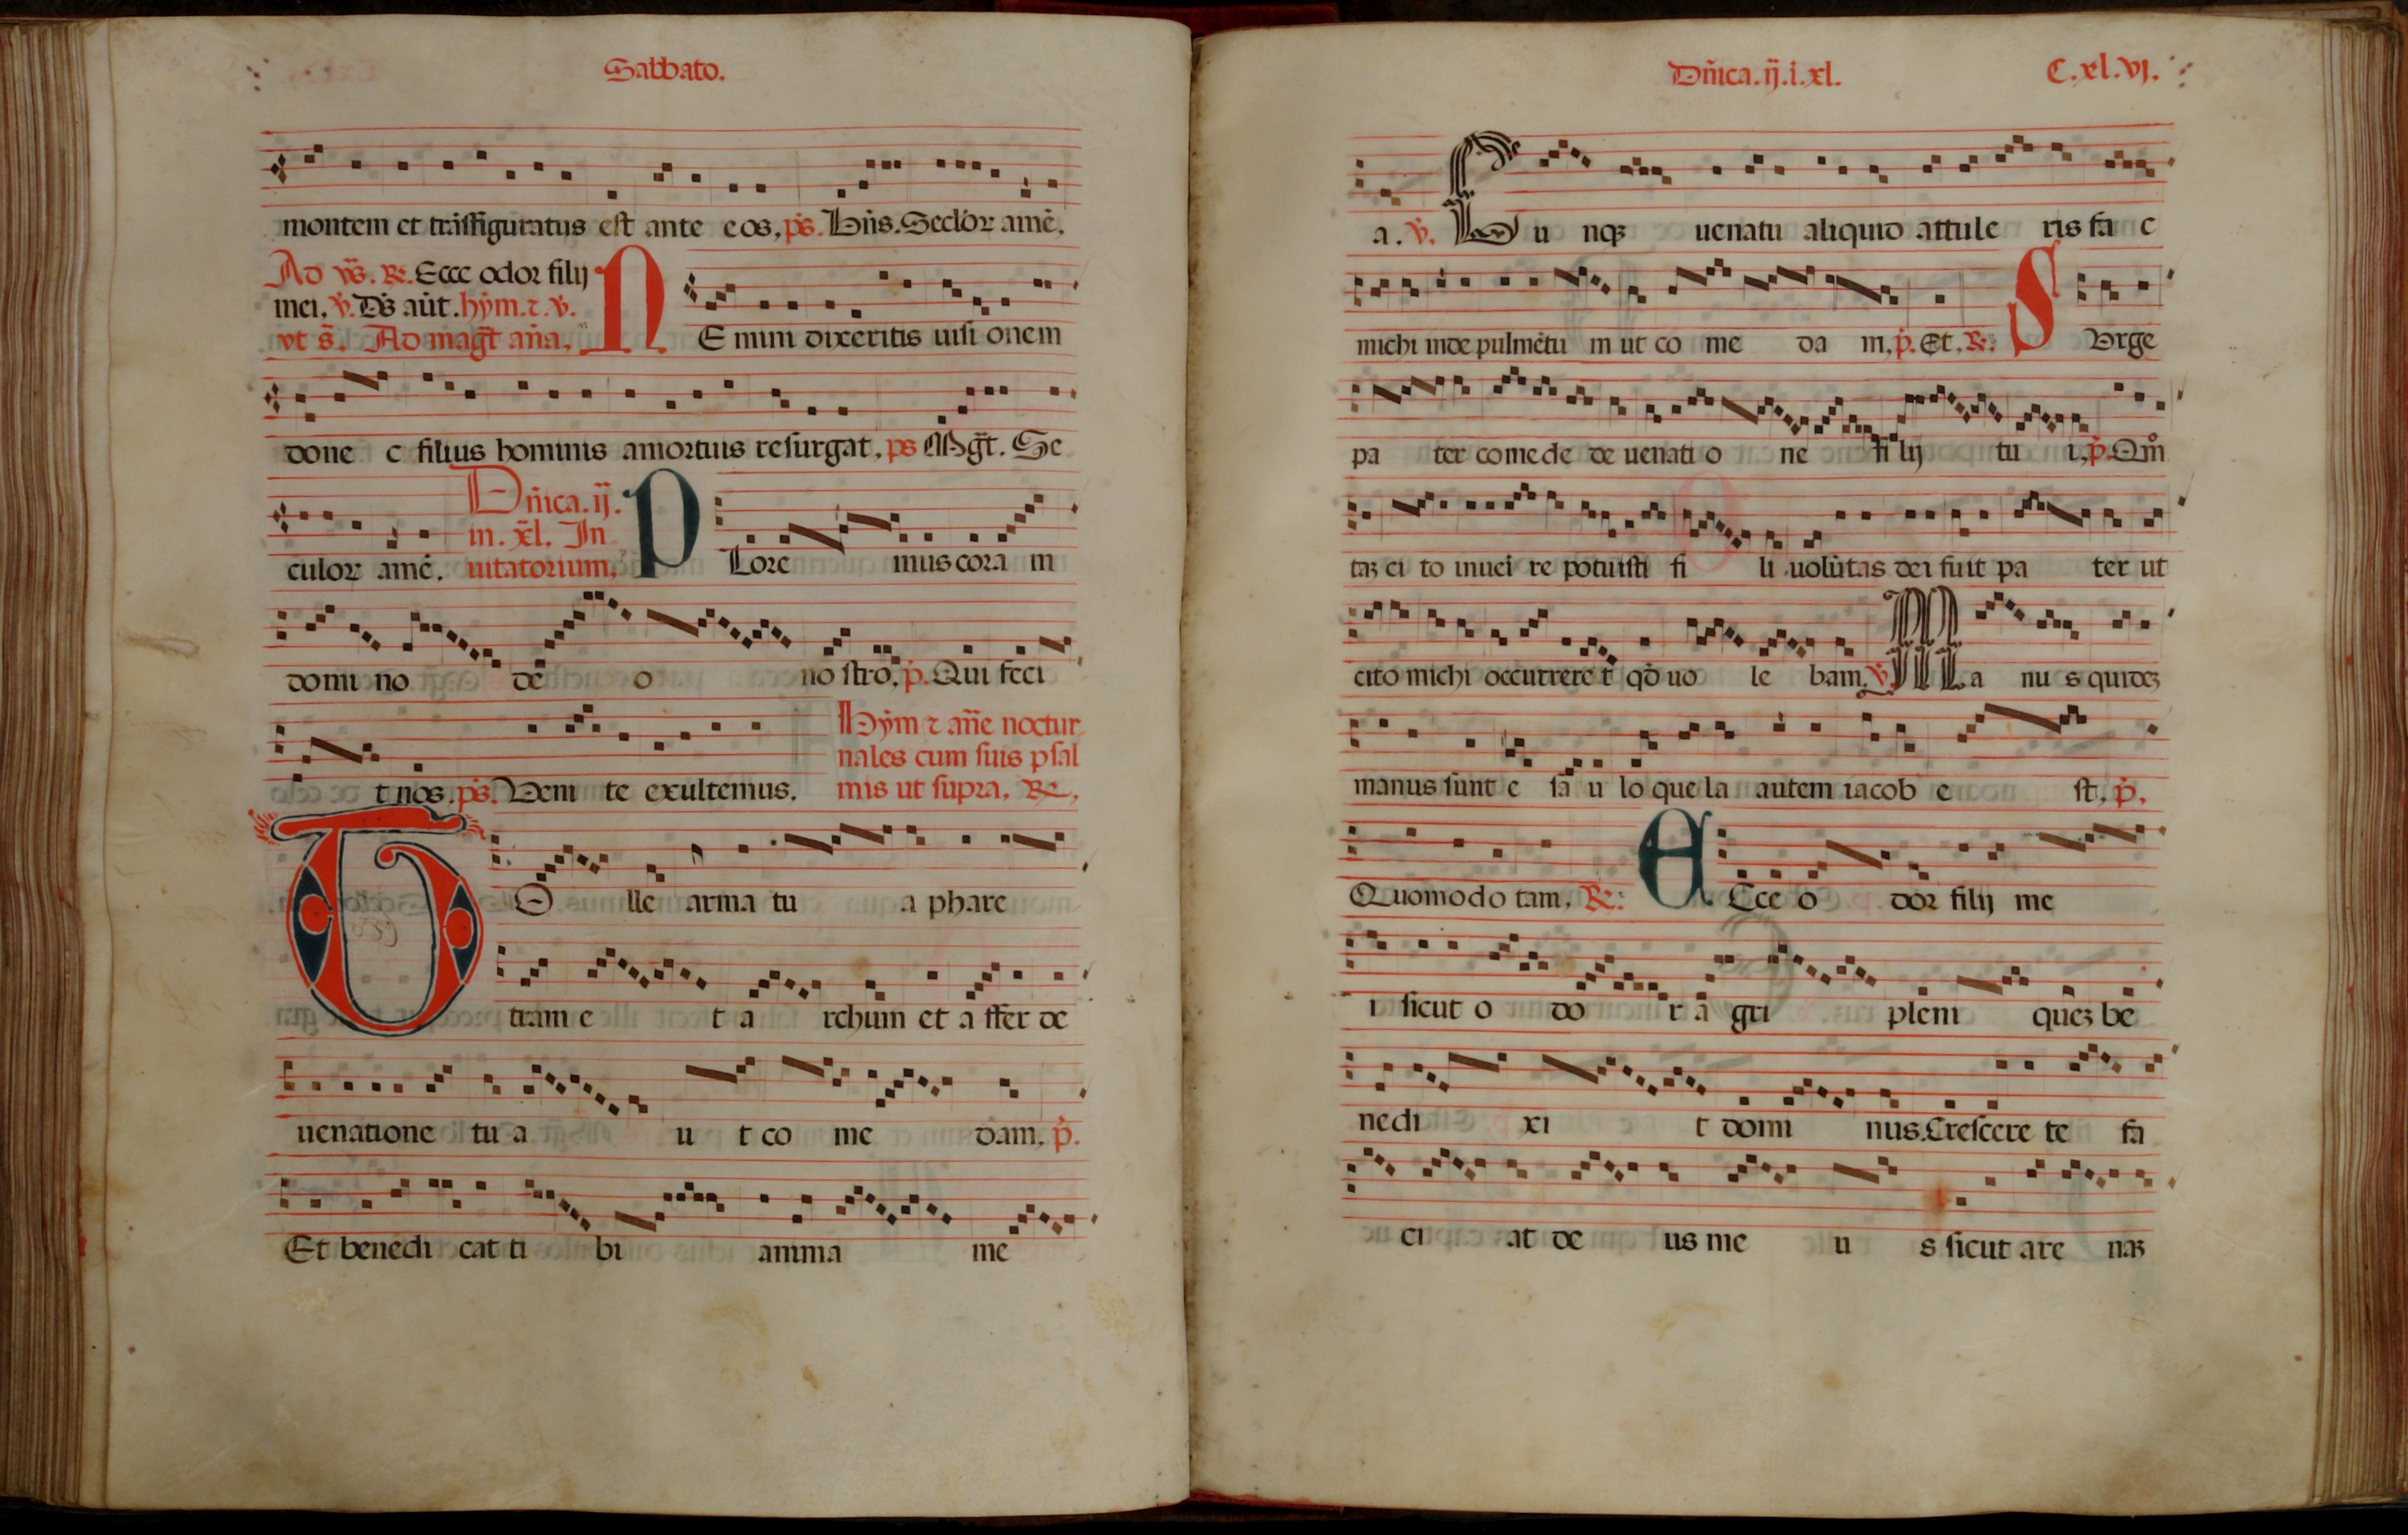 Sabbato.
montem et trãsfiguratus est ante eos. p̃s. Dñs. Seclor amẽ.
Ad ṽs. R. Ecce odor filij
mei. ṽ. Ds aũt. hỹm. ⁊. ṽ.
vt s̃. Ad mag̃t añã.
N E mini dixeritis uisi onem
done c filius hominis amortuis resurgat. ps Mg̃t. Se
culor amẽ.
Dñica. ij.
in. xl̃. In
uitatorium.
P Lore mus cora m
domi no de o no stro. p̃. Qui feci
t nos. p̃s. Veni te exultemus.
Hỹm ⁊ añe noctur
nales cum suis psal
mis ut supra. R.
T O lle arma tu a phare
tram e t a rchum et a ffer de
uenatione tu a u t co me dam. p̃.
Et benedi cat ti bi anima me
Dñica. ij. i. xl.
C. xl. vj.
a. ṽ. Cu nqꝫ uenatu aliquid attule ris fa c
michi inde pulmẽtu m ut co me da m. p̃. Et. R. S Vrge
pa ter comede de uenati o ne fi lij tu i. p̃. Qm̊
taꝫ ci to inuei re potuisti fi li uolũtas dei fuit pa ter ut
cito michi occurrere t qd̃ uo le bam. ṽ. Ma nu s quideꝫ
manus sunt e sa u lo que la autem iacob e st. p̃.
Quomodo tam. R. E Cce o dor filij me
i sicut o do r a gri pleni queꝫ be
nedi xi t domi nus. Crescere te fa
ci at de us me u s sicut are naꝫ